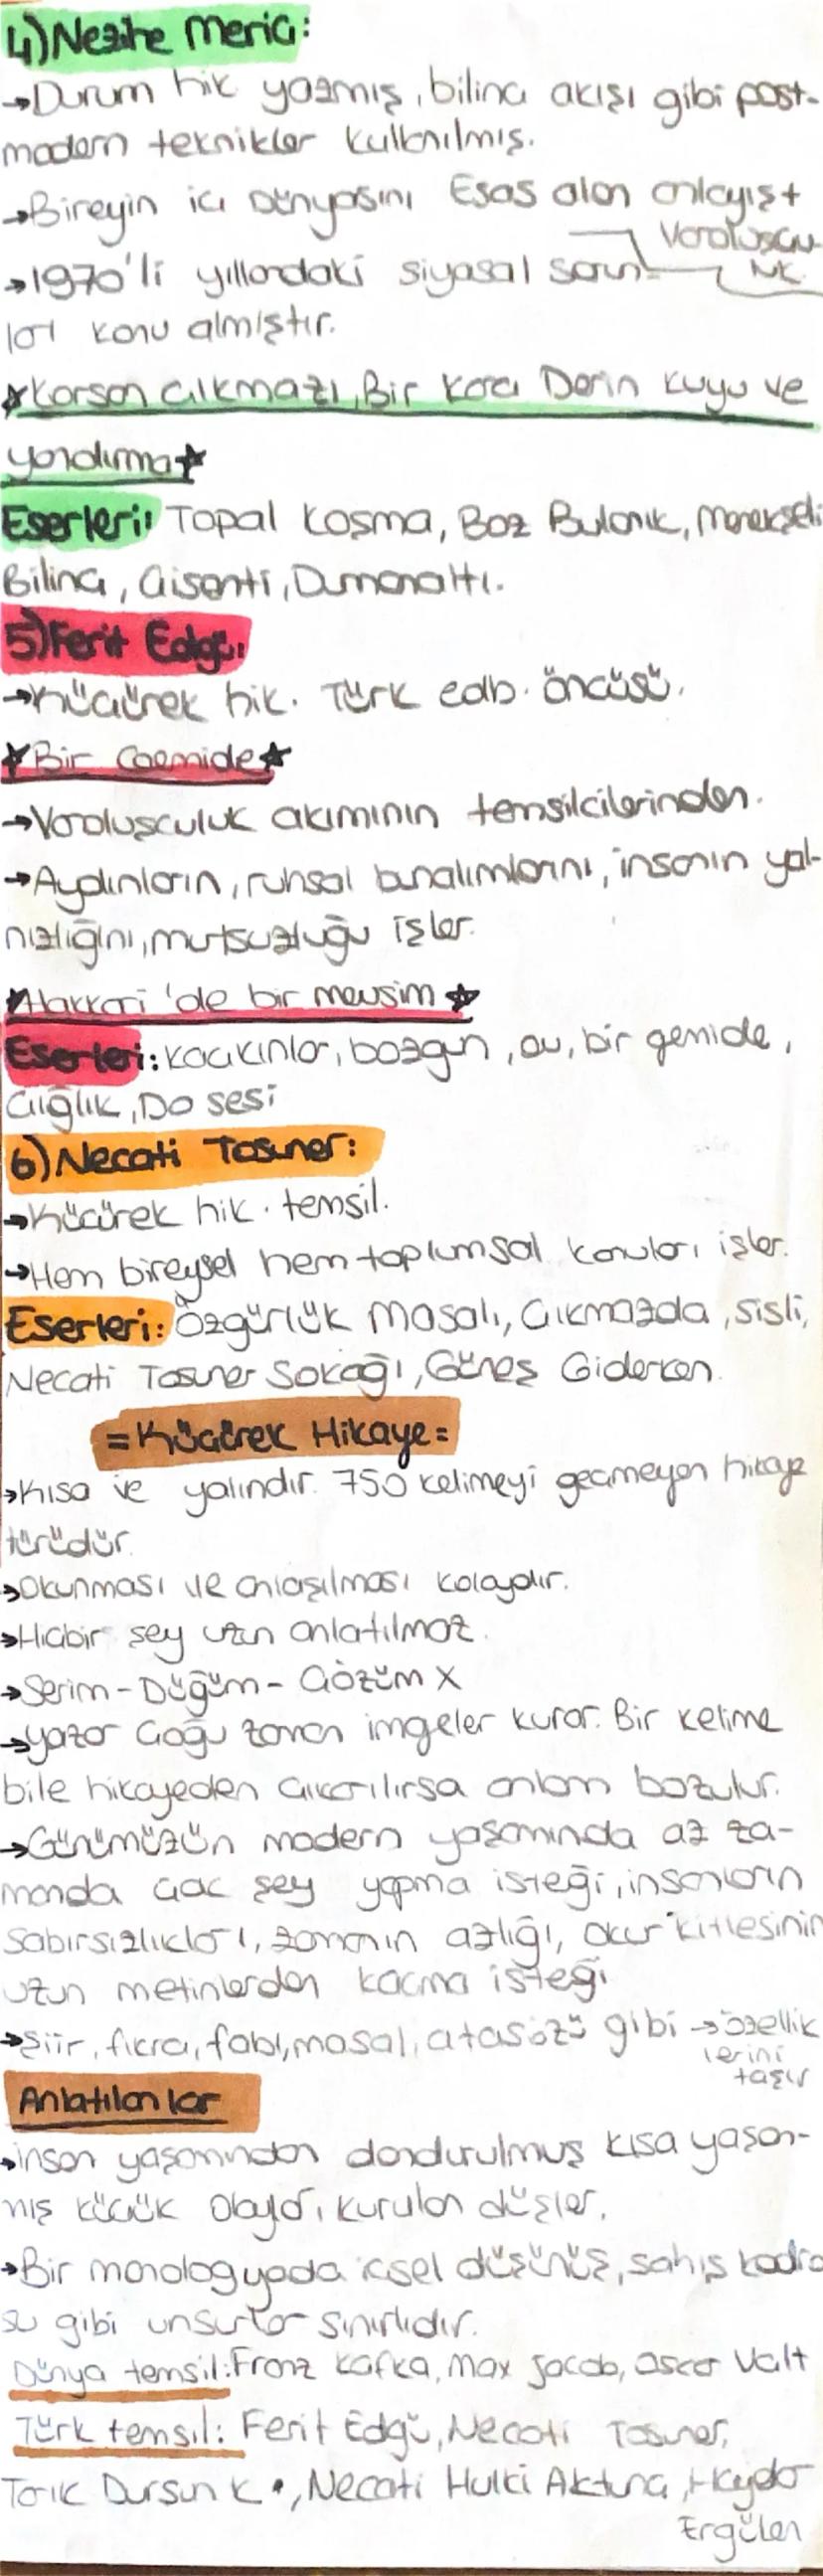 4) Nezihe Meriç:
→Durum hik yazmış, bilinç akışı gibi post-
modern teknikler kullanılmış.
→Bireyin iç Dünyasını Esas alan anlayış+
Varoluşçu-
→1970'li yıllardaki siyasal sorun-
luk
ları konu almıştır.
☆Korsan Çıkmazı, Bir Kara Derin Kuyu ve
yandırma☆
Eserleri: Topal Koşma, Boz Bulanık, Menekşeli
Bilinç, Çisenti, Dumanaltı.
5) Ferit Edgü:
→Küçürek hik. Türk edb. öncüsü.
☆Bir Gemide☆
→Varoluşculuk akımının temsilcilerinden.
→Aydınların, ruhsal bunalımlarını, insanın yal-
nızlığını, mutsuzluğu işler.
☆Hakkari'de bir mevsim☆
Eserleri: Kaçkınlar, bozgun, av, bir gemide,
Çığlık, Do sesi
6) Necati Tosuner:
→Küçürek hik. temsil.
→Hem bireysel hem toplumsal konuları işler.
Eserleri: Özgürlük Masalı, Çıkmazda, Sisli,
Necati Tosuner Sokağı, Güneş Giderken.
=Küçürek Hikaye=
→Kısa ve yalındır. 750 kelimeyi geçmeyen hikaye
türüdür.
→Okunması ve anlaşılması kolaydır.
→Hiçbir şey uzun anlatılmaz.
→Serim-Düğüm-Çözüm X
→yazar Çoğu zaman imgeler kurar. Bir kelime
bile hikayeden çıkarılırsa anlam bozulur.
→Günümüzün modern yaşamında az za-
manda çoc şey yapma isteği, insanların
Sabırsızlıkları, zamanın azlığı, okur kitlesinin
uzun metinlerden kaçma isteği
→Şiir, fıkra, fabl, masal, atasözü gibi →özellik
lerini
taşır
Anlatılanlar
→insan yaşamından dondurulmuş kısa yaşan-
mış küçük olaylar, kurulan düşler.
→Bir monolog yada içsel düşünüş, şahıs kadro
su gibi unsurlar sınırlıdır.
Dünya temsil: Franz Kafka, Max Jacob, Oscar Valt
Türk temsil: Ferit Edgü, Necati Tosuner,
Tarık Dursun K., Necati Hulki Aktunç, Haydar
Ergülen